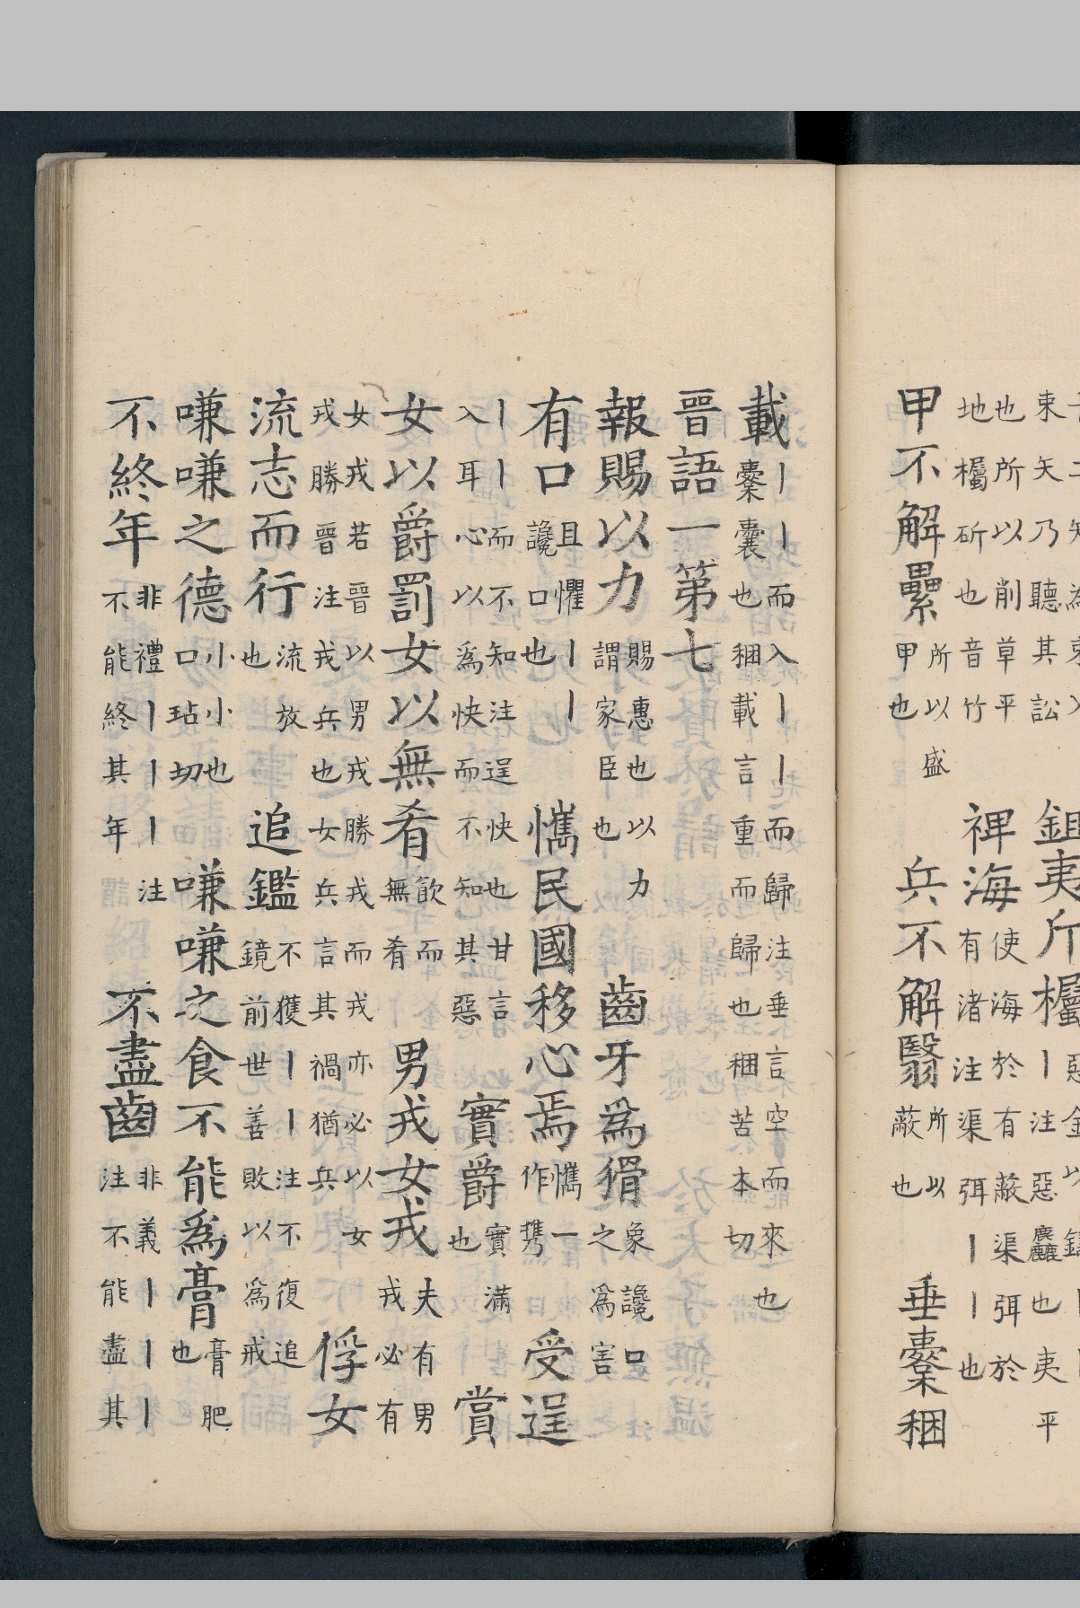 束矢乃聽其訟 鉏夷斤欘 丨注惡麤也夷平
也所以削草平地欘斫也音竹 裨海 使海於有蔽渠弭於有渚注渠弭丨丨也
甲不解壘 所以盛甲也 兵不解翳 所以蔽也 垂櫜稇
載 丨丨而入丨丨而歸注垂言空而來也櫜囊也稇載言重而歸也稇苦本切
晉語一第七
報賜以力 賜惠也以力謂家臣也 齒牙為猾 象讒口之為害
有口 且懼丨丨讒口也 懏民國移心焉 懏一作携 受逞
丨丨而不知注逞快也甘言入耳心以為快而不知其惡 實爵 實滿也 賞
女以爵罰女以無肴 飲而無肴 男戎女戎 夫有男戎必有
女戎若晉以男戎勝戎而戎亦必以女戎勝晉注戎兵也女兵言其禍猶兵 俘女
流志而行 流放也 追鑑 不獲丨丨注不復追鏡前世善敗以為戒
嗛嗛之德 小小也口玷切 嗛嗛之食不能為膏 膏肥也
不終年 非禮丨丨丨注不能終其年 不盡齒 非義丨丨丨注不能盡其